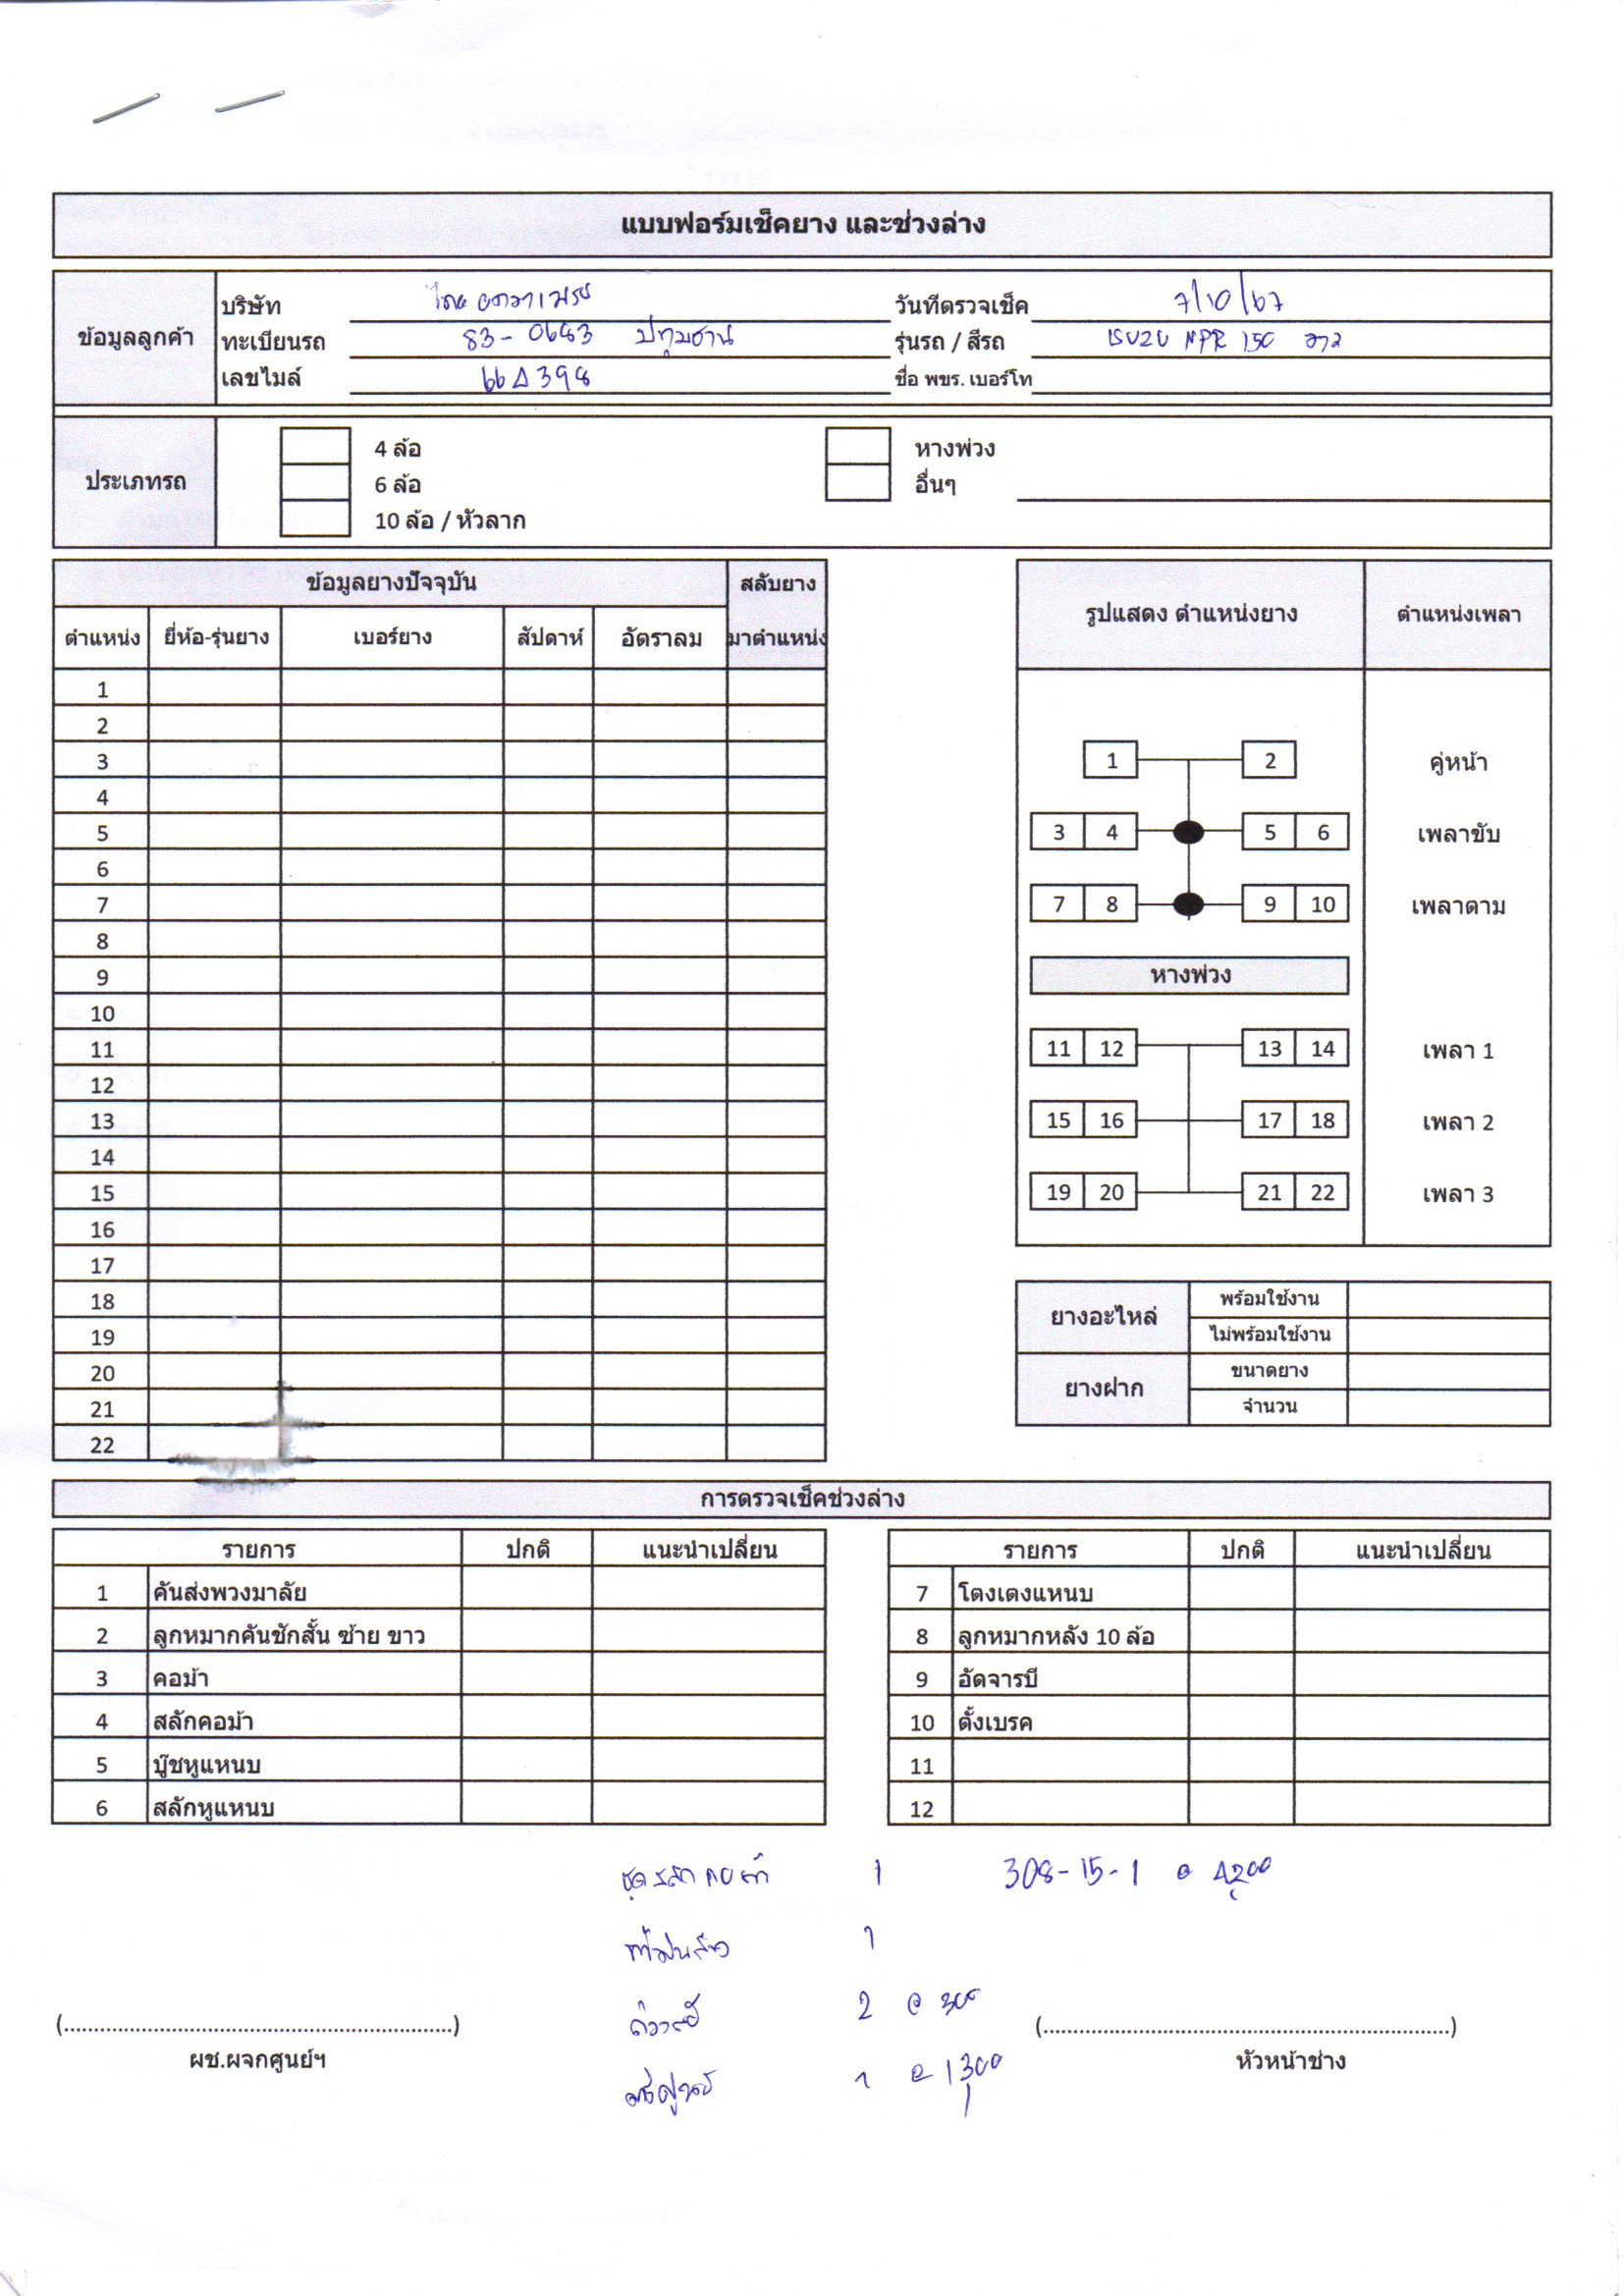 แบบฟอร์มเช็คยาง และช่วงล่าง
ข้อมูลลูกค้า
บริษัท ไทย
วันที่ตรวจเช็ค 7/10/67
ทะเบียนรถ 83-0683 ปทุมธานี
รุ่นรถ / สีรถ ISUZU NPR 150 ขาว
เลขไมล์ 664398
ชื่อ พขร. เบอร์โท
ประเภทรถ
4 ล้อ
หางพ่วง
6 ล้อ
อื่นๆ
10 ล้อ / หัวลาก
ข้อมูลยางปัจจุบัน สลับยาง
ตำแหน่ง ยี่ห้อ-รุ่นยาง เบอร์ยาง สัปดาห์ อัตราลม มาตำแหน่ง
1
2
3
4
5
6
7
8
9
10
11
12
13
14
15
16
17
18
19
20
21
22
รูปแสดง ตำแหน่งยาง ตำแหน่งเพลา
1 2 คู่หน้า
3 4 5 6 เพลาขับ
7 8 9 10 เพลาตาม
หางพ่วง
11 12 13 14 เพลา 1
15 16 17 18 เพลา 2
19 20 21 22 เพลา 3
ยางอะไหล่ พร้อมใช้งาน
ไม่พร้อมใช้งาน
ยางฝาก ขนาดยาง
จำนวน
การตรวจเช็คช่วงล่าง
รายการ ปกติ แนะนำเปลี่ยน
1 คันส่งพวงมาลัย
2 ลูกหมากคันชักสั้น ซ้าย ขาว
3 คอม้า
4 สลักคอม้า
5 บู๊ชหูแหนบ
6 สลักหูแหนบ
รายการ ปกติ แนะนำเปลี่ยน
7 โตงเตงแหนบ
8 ลูกหมากหลัง 10 ล้อ
9 อัดจารบี
10 ตั้งเบรค
11
12
ชุดสลักคอม้า 1 308-15-1 @ 4200
1
2 @ 300
1 @ 1300
(....................................................................)
ผช.ผจกศูนย์ฯ
(.......................................................................)
หัวหน้าช่าง